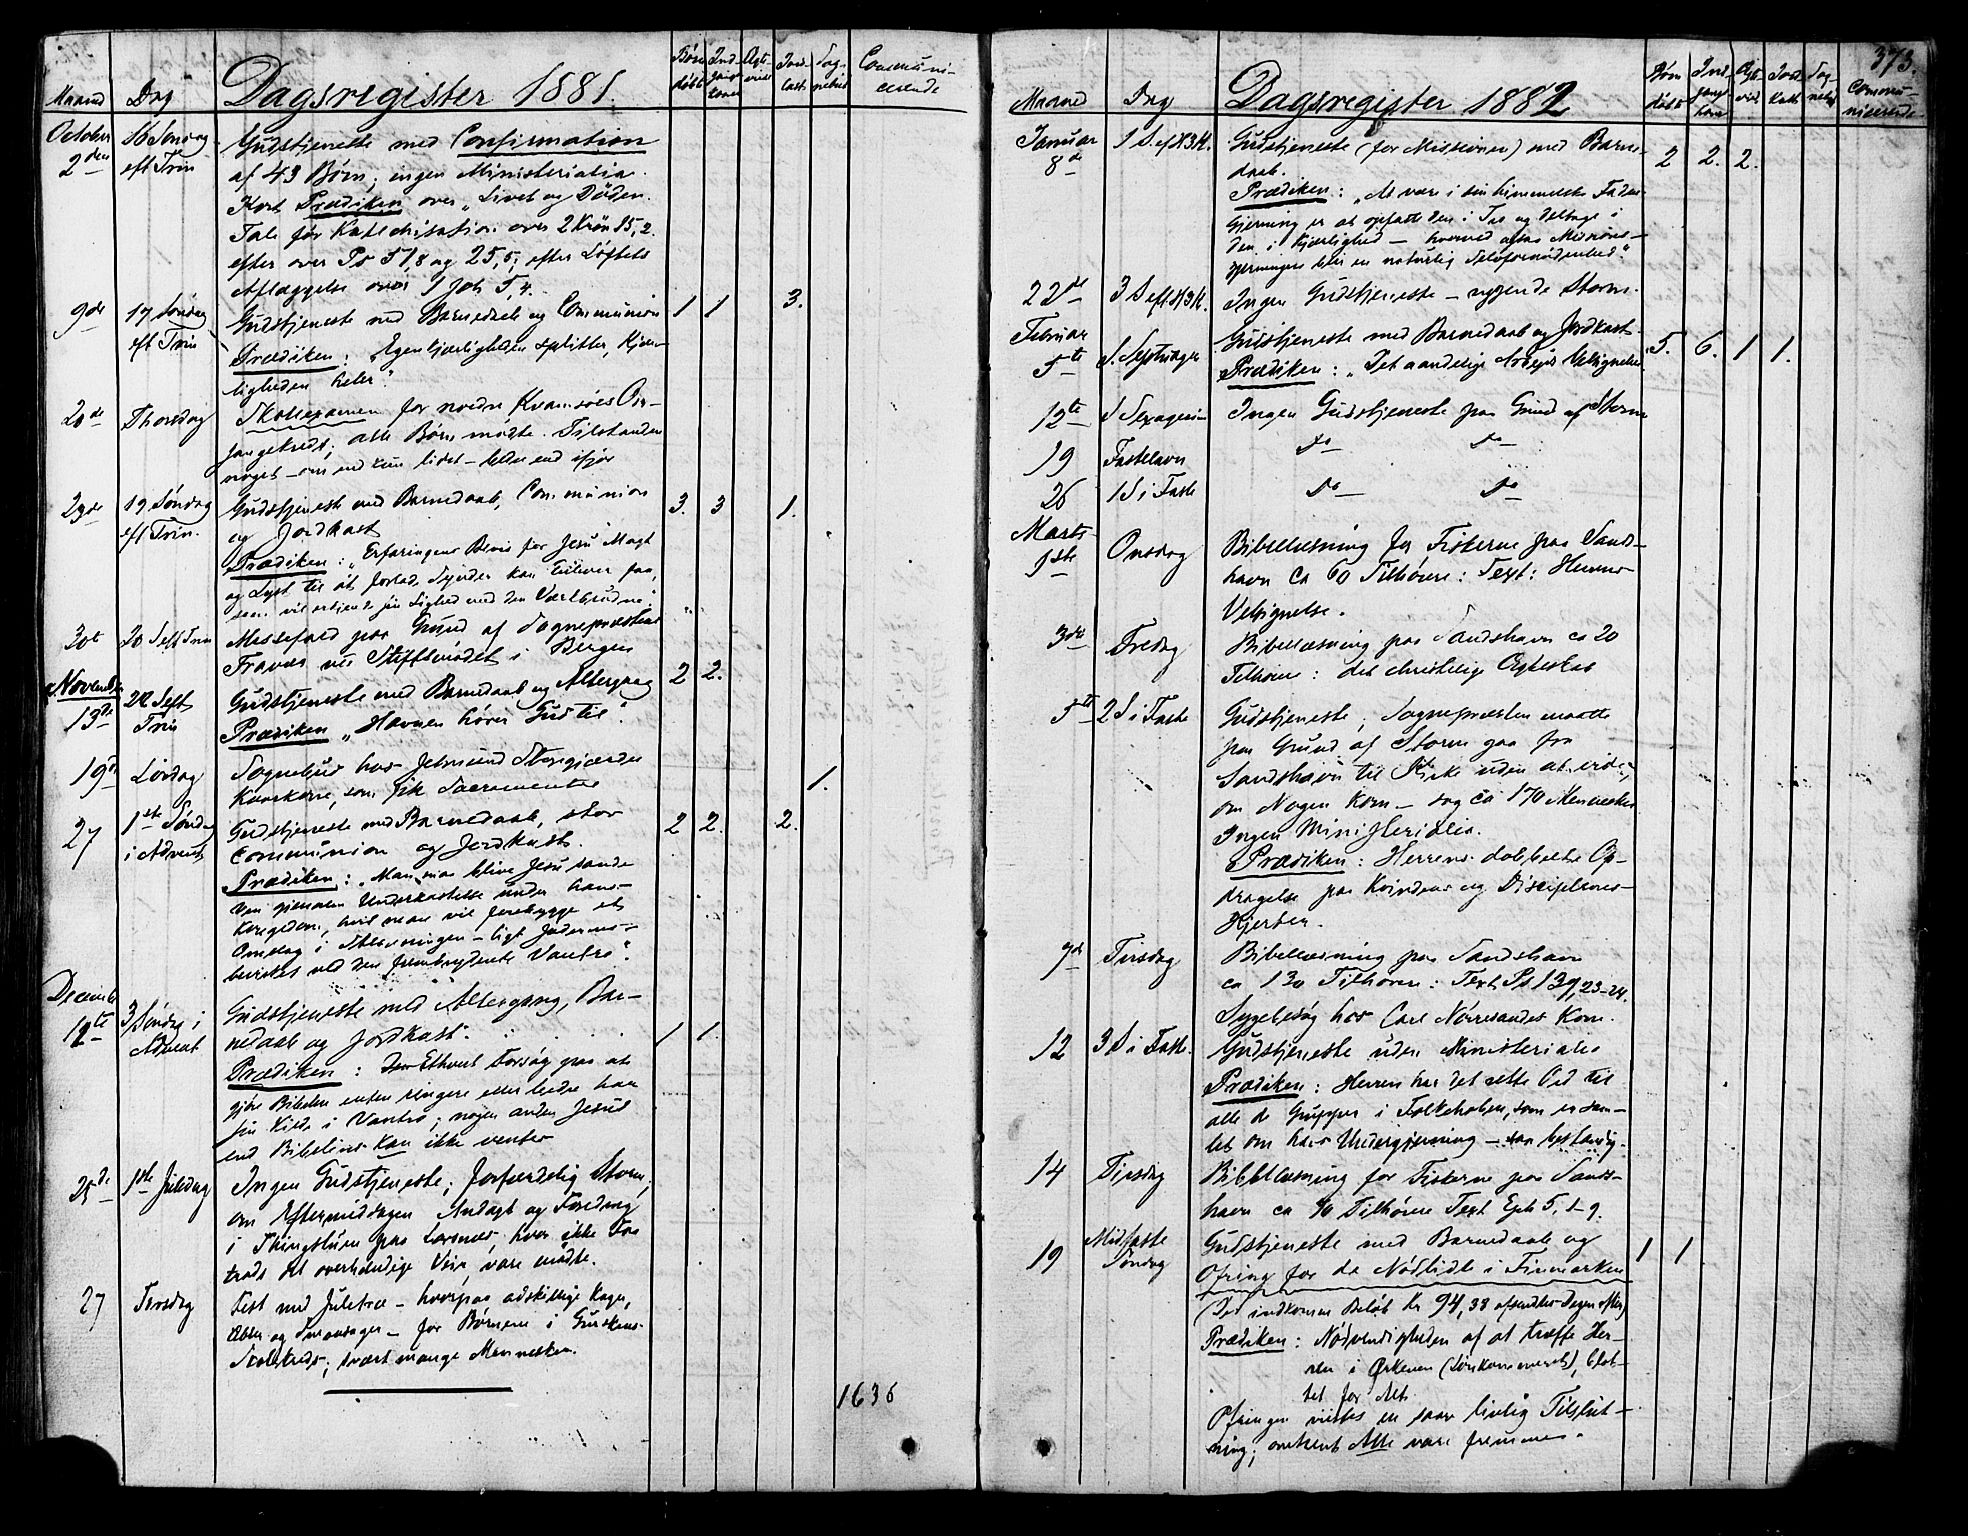 373.
Maaned Dag Dagsregister 1881. Børn døbte Ind- gangs- koner Ægte- viede Jord- kast. Sog- nebud Communi- cerende
October 2den 16 Søndag eft Trin Gudstjeneste med Confirmation
af 43 Børn; ingen Ministerialia.
Kort Prædiken over "Livet og Døden.
Tale før Katechisation over 2 Krøn 15, 2.
efter over Ps 51, 8 og 25, 5; efter Løftets
Aflæggelse over 1 Joh 5, 4.
9de 17 Søndag eft Trin Gudstjeneste med Barnedaab og Communion 1 1 3.
Prædiken: "Egenkjærligheden splitter, Kjær-
ligheden heler".
20de Thorsdag Skoleexamen for nordre Kvamsøes Om-
gangskreds; alle Børn mødte. Tilstanden
noget – om end kun lidet – bedre end ifjor
23de 19 Søndag eft Trin. Gudstjeneste med Barnedaab, Communion 3. 3 1.
og Jordkast
Prædiken: "Erfaringens Bevis for Jesu Magt
og Lyst til at forlade Synder kan Enhver faa,
som vil erkjende sin Lighed med den Værkbrudne".
30te 20 S eft Trin Messefald paa Grund af Sognepræstens
Fravær ved Stiftsmødet i Bergen
November 13de 22 S eft Trin Gudstjeneste med Barnedaab og Altergang 2 2.
Prædiken "Havnen hører Gud til".
19de Lørdag Sognebud hos Jetmund Storegjærdes 1.
Kaarkone, som fik Sacramentet
27 1ste Søndag i Advent Gudstjeneste med Barnedaab, stor 2 2. 2.
Communion og Jordkast.
Prædiken: "Man maa blive Jesu sande
Ven gjennem Underkastelse under hans
Kongedom, hvis man vil forebygge et
Omslag i Stemningen – ligt Jødernes –
bevirket ved den frembrydende Vantro".
December 12te 3 Søndag i Advent Gudstjeneste med Altergang, Bar- 1 1.
nedaab og Jordkast.
Prædiken: Ethvert Forsøg paa at
gjøre Bibelen enten ringere eller bedre har
sin Kilde i Vantro; nogen anden Jesus
end Bibelens kan ikke ventes
25de 1ste Juledag Ingen Gudstjeneste; forfærdelig Storm;
om Eftermiddagen Andagt og Foredrag
i Thingstuen paa Larsnes, hvor ikke Faa
trods det overhændige Veir vare mødte.
27 Tirsdag Fest med Juletræ – hvorpaa adskillige Kager,
Æbler og Smaasager – for Børnene i Gurskens
Skolekreds; svært mange Mennesker.
1636
Maaned Dag Dagsregister 1882 Børn døbte Ind- gangs- koner Ægt- vi. Jord- kast Sog- nebud Commu- nicerende
Januar 8de 1 S. ef H3K. Gudstjeneste (for Missionen) med Barne- 2 2. 2.
daab.
Prædiken: "At være i sin himmelske Faders
Gjerning er at opfatte den i Tro og deltage i
den i Kjærlighed – hvorved altsaa Missions-
gjerningen bliver en naturlig Livsfornødenhed".
22de 3 S eft H3K. Ingen Gudstjeneste – rygende Storm.
Februar 5te S. Septuages Gudstjeneste med Barnedaab og Jordkast. 5. 6. 1 1.
Prædiken: "Det aandelige Arbeides Velsignelse
12te S Sexagesim Ingen Gudstjeneste paa Grund af Storm
19 Fastelavn do do
26 1 S i Faste do do
Marts 1ste Onsdag Bibellæsning for Fiskerne paa Sands-
havn ca 60 Tilhørere: Text: Herrens
Velsignelse.
3die Fredag Bibellæsning paa Sandshavn ca 20
Tilhørere: det christelige Ægteskab
5te 2 S i Faste Gudstjeneste; Sognepræsten maatte
paa Grund af Storm gaa fra
Sandshavn til Kirke uden at vide,
om Nogen kom – dog ca 170 Mennesker
Ingen Ministerialia.
Prædiken: Herrens dobbelte Op-
dragelse paa Kvindens og Disciplenes
Hjerter.
7de Tirsdag Bibellæsning paa Sandshavn
ca 130 Tilhørere: Text Ps 139, 23–24.
Sygebesøg hos Carl Nørresandes Kone.
12 3 S i Faste. Gudstjeneste uden Ministerialia
Prædiken: Herren har det rette Ord til
alle de Grupper i Folkehoben, som er sam-
let om hans Undergjerning – saa bestandig.
14 Tirsdag Bibellæsning for Fiskerne paa Sands-
havn ca 90 Tilhørere Text Eph 5, 1–9.
19 Midfaste Søndag Gudstjeneste med Barnedaab og 1 1
Ofring for de Nødlidte i Finmarken
(Det indkomne Beløb Kr 94,33 afsendtes Dagen efter)
Prædiken: Nødvendigheden af at træffe Her-
ren i Ørkenen (Lønkammeret), blot-
tet for Alt.
Ofringen vistes en saare livlig Tilslut-
ning; omtrent Alle vare fremme.